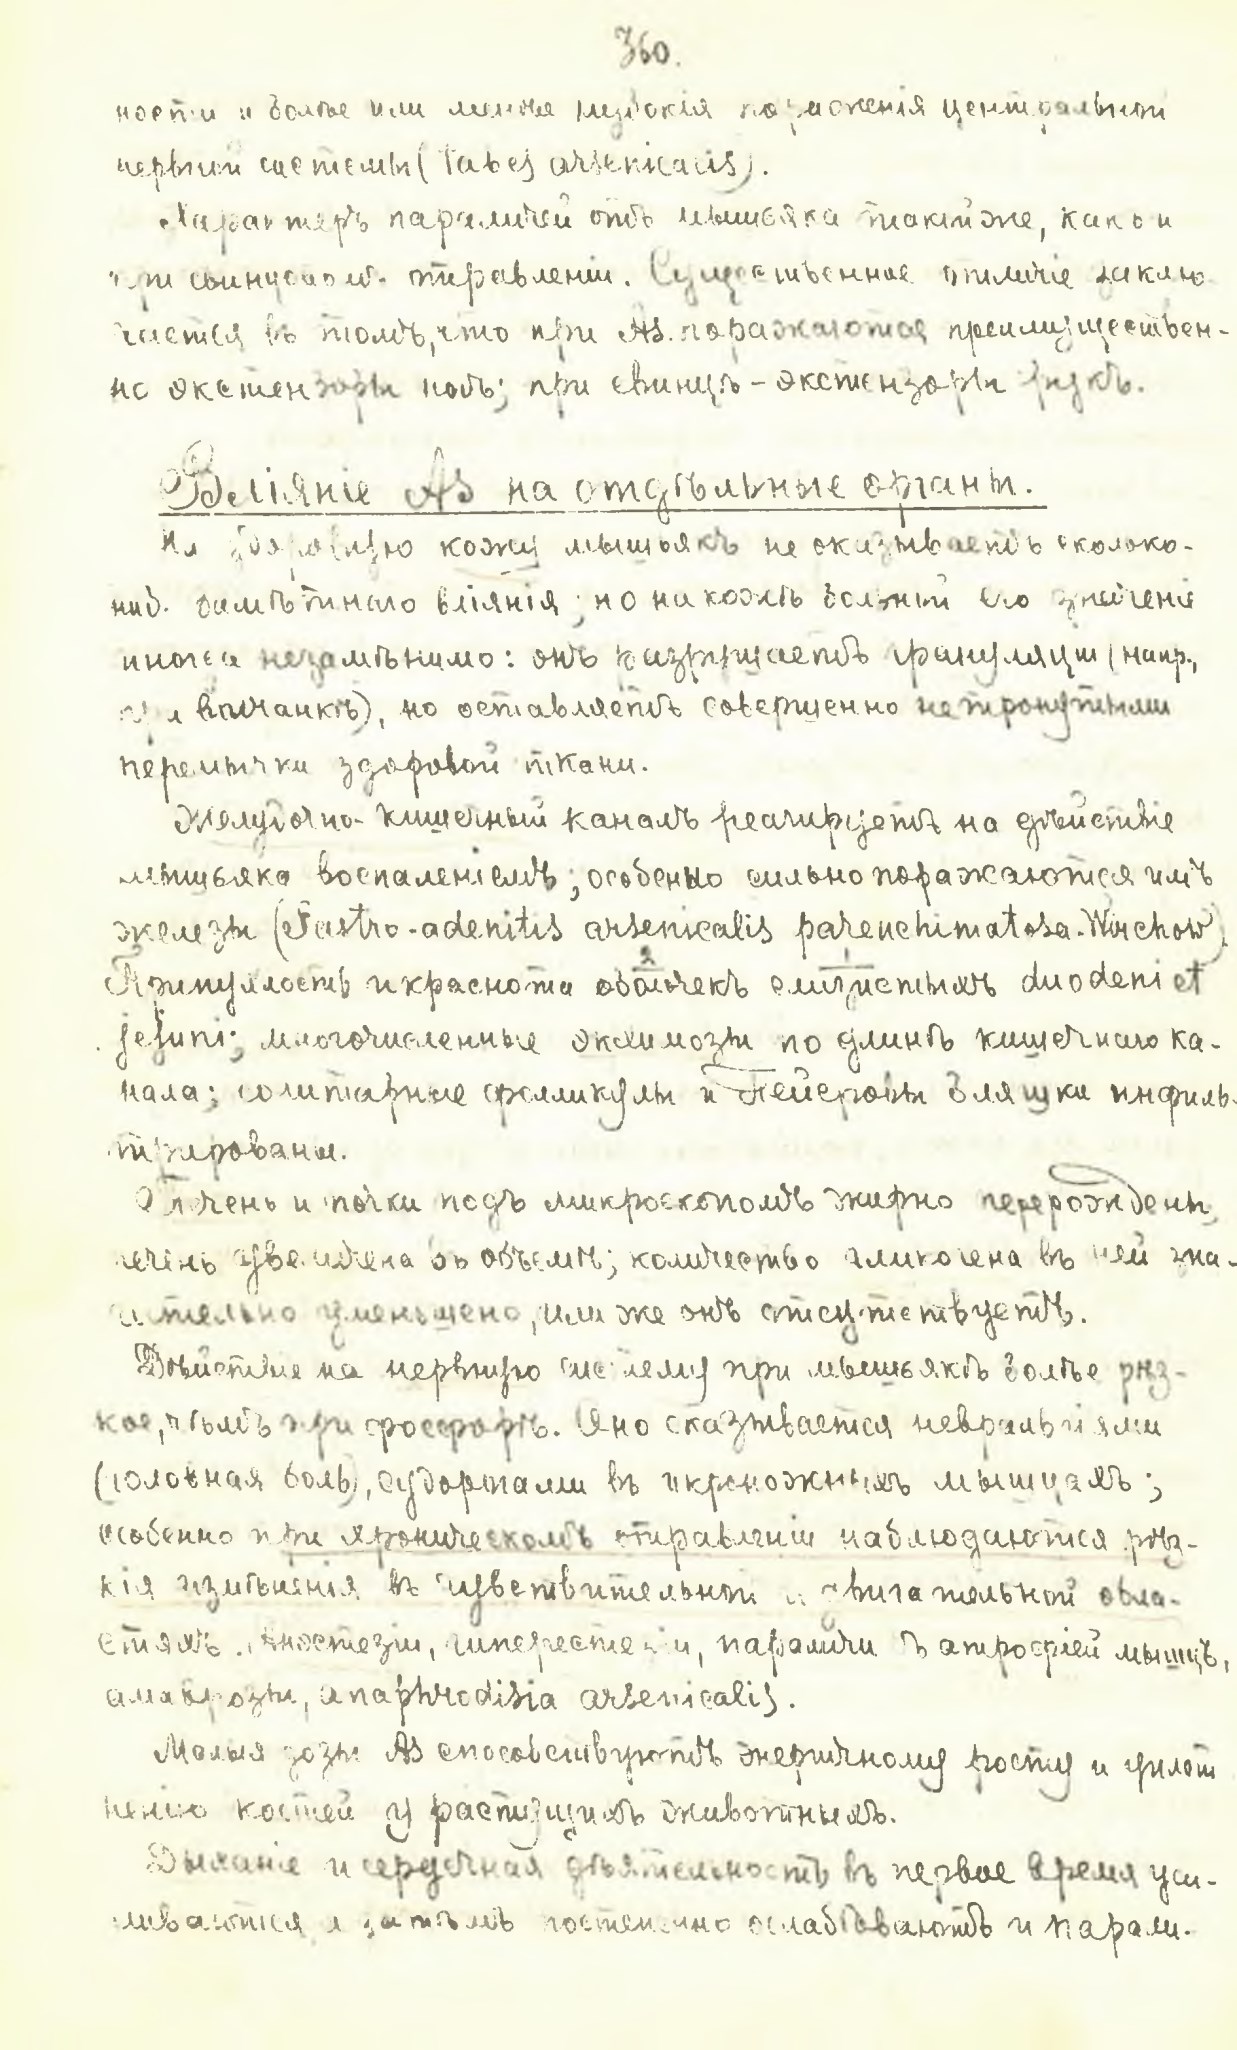 360.
ности и болѣе или менѣе глубокія пораженія центральной
нервной системы (Tabes arsenicalis).
Характеръ параличей отъ мышьяка такой же, какъ и
при свинцовомъ отравленіи. Существенное отличіе заклю-
чается въ томъ, что при As. поражаются преимуществен-
но экстензоры ногъ; при свинцѣ - экстензоры рукъ.
Вліяніе As на отдѣльные органы.
На здоровую кожу мышьякъ не оказываетъ сколько-
ниб. замѣтнаго вліянія; но на кожѣ больной его значеніе
иногда незамѣнимо: онъ разрушаетъ грануляціи (напр.,
при волчанкѣ), но оставляетъ совершенно нетронутыми
перемычки здоровой ткани.
Желудочно-кишечный каналъ реагируетъ на дѣйствіе
мышьяка воспаленіемъ; особенно сильно поражаются имъ
железы (Gastro-adenitis arsenicalis parenchimatosa - Wirchow).
Припухлость и краснота оболочекъ слизистыхъ duodeni et
jejuni; многочисленные экхимозы по длинѣ кишечнаго ка-
нала; солитарные фолликулы и Пейеровы бляшки инфиль-
трированы.
Печень и почки подъ микроскопомъ жирно перерождены,
печень увеличена въ объемѣ; количество гликогена въ ней зна-
чительно уменьшено, или же онъ отсутствуетъ.
Дѣйствіе на нервную систему при мышьякѣ болѣе рѣз-
кое, чѣмъ при фосфорѣ. Оно сказывается невральгіями
(головная боль), судорогами въ икроножныхъ мышцахъ;
особенно при хроническомъ отравленіи наблюдаются рѣз-
кія измѣненія въ чувствительной и двигательной обла-
стяхъ. Анэстезіи, гиперестезіи, параличи съ атрофіей мышцъ,
амаврозы, anaphrodisia arsenicalis.
Малыя дозы As способствуютъ энергичному росту и уплот
ненію костей у растущихъ животныхъ.
Дыханіе и сердечная дѣятельность въ первое время уси-
ливаются и затѣмъ постепенно ослабѣваютъ и парали-